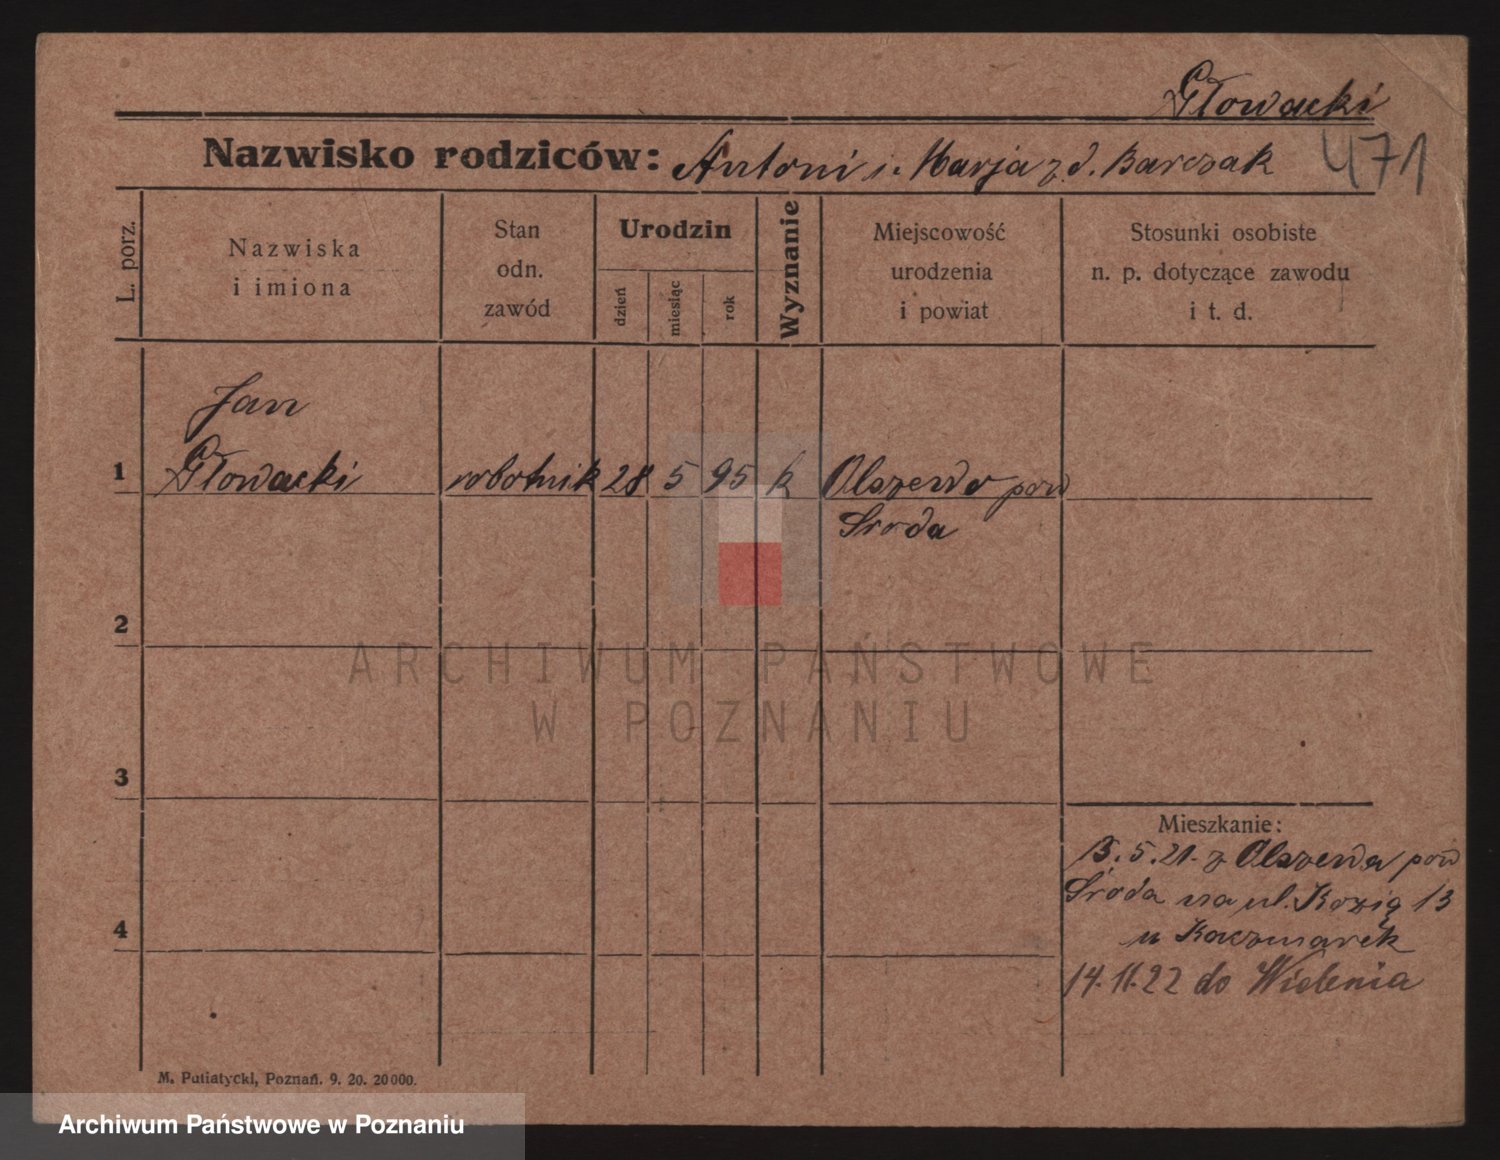 Głowacki
Nazwisko rodziców: Antoni i. Marja z d. Barczak
471
L. porz.
Nazwiska
i imiona
Stan
odn.
zawód
Urodzin
dzień
miesiąc
rok
Wyznanie
Miejscowość
urodzenia
i powiat
Stosunki osobiste
n. p. dotyczące zawodu
i t. d.
Jan
1 Głowacki robotnik 28 5 95 k Olszewo pow
Sroda
2
ARCHIWUM PAŃSTWOWE
W POZNANIU
3
Mieszkanie:
13.5.21. z Olszewa pow
Środa na ul. Kozią 13
4
u Kaczmarek
14.11.22 do Wielenia
M. Putiatycki, Poznań. 9. 20. 20000.
Archiwum Państwowe w Poznaniu